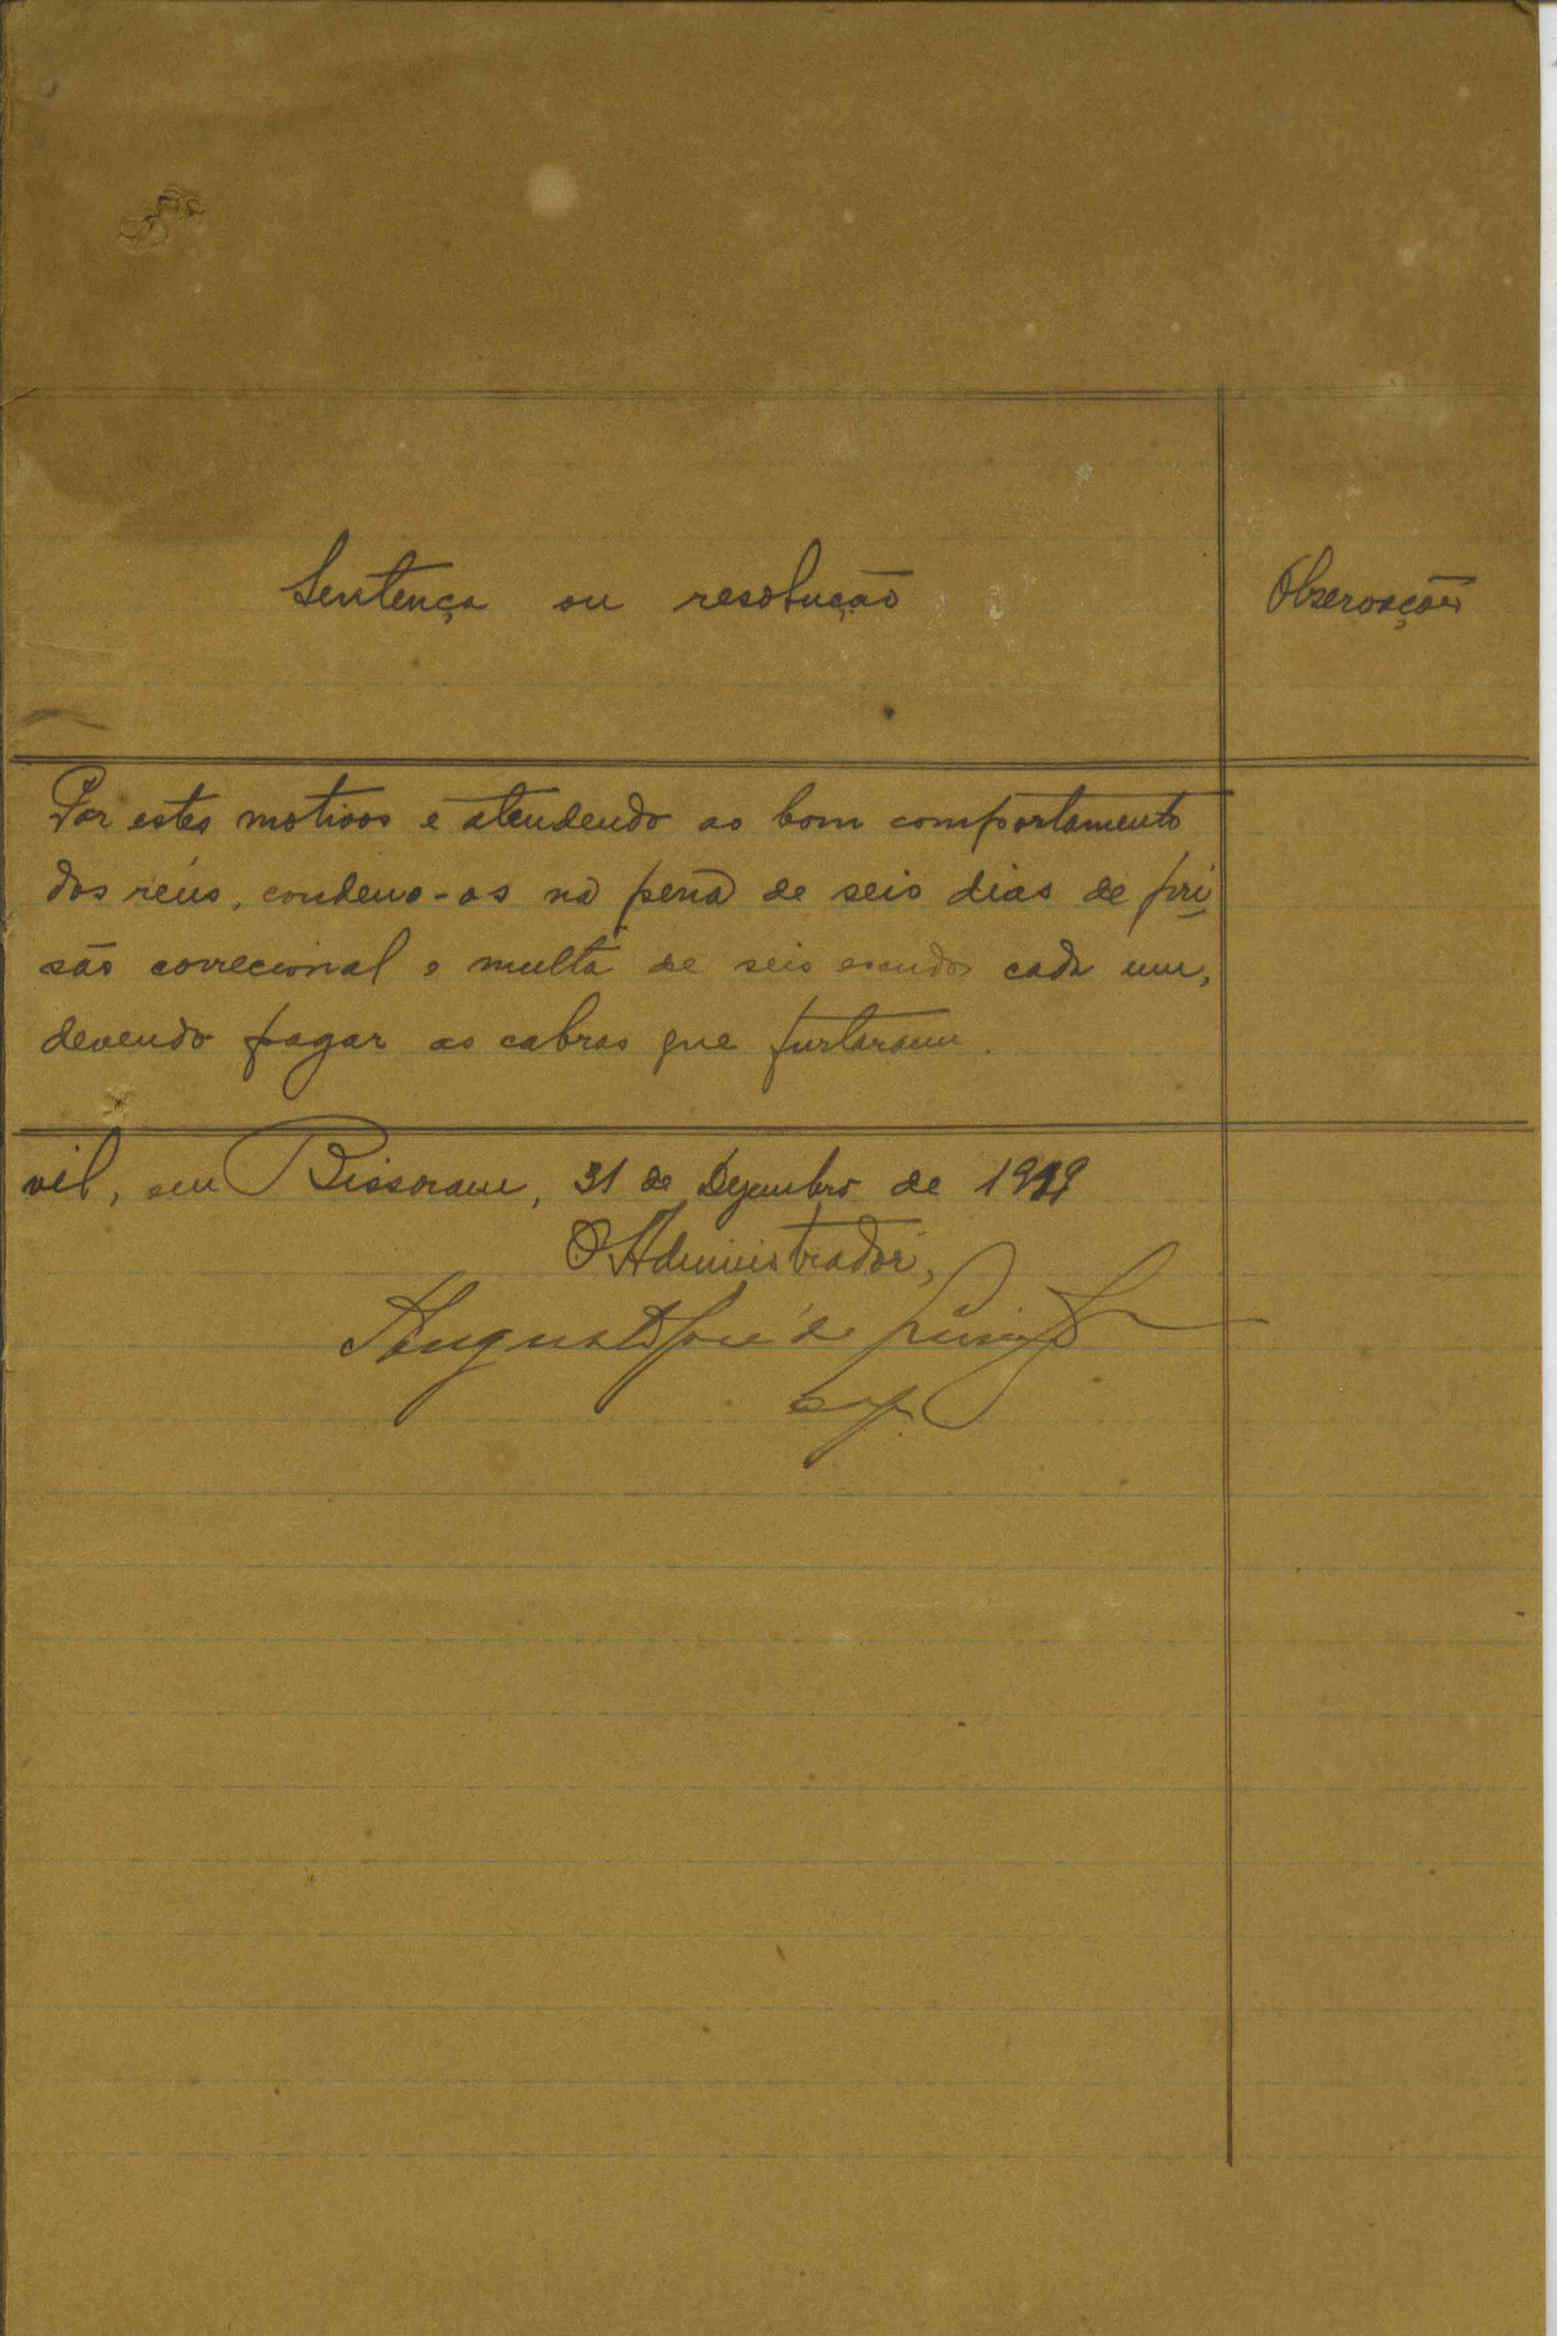 Sentença ou resolução
Observações
Por estes motivos e atendendo ao bom comportamento
dos réus, condeno-os na pena de seis dias de pri
são correcional e multa de seis escudos cada um,
devendo pagar as cabras que furtaram.
vil, em Bissoram, 31 de Dezembro de 1919
O Administrador,
Augusto José de